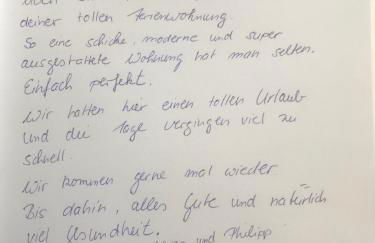 deiner tollen Ferienwohnung.
So eine schicke, moderne und super
ausgestattete Wohnung hat man selten.
Einfach perfekt.
Wir hatten hier einen tollen Urlaub
und die Tage vergingen viel zu
schnell.
Wir kommen gerne mal wieder
Bis dahin, alles Gute und natürlich
viel Gesundheit.
und Philipp